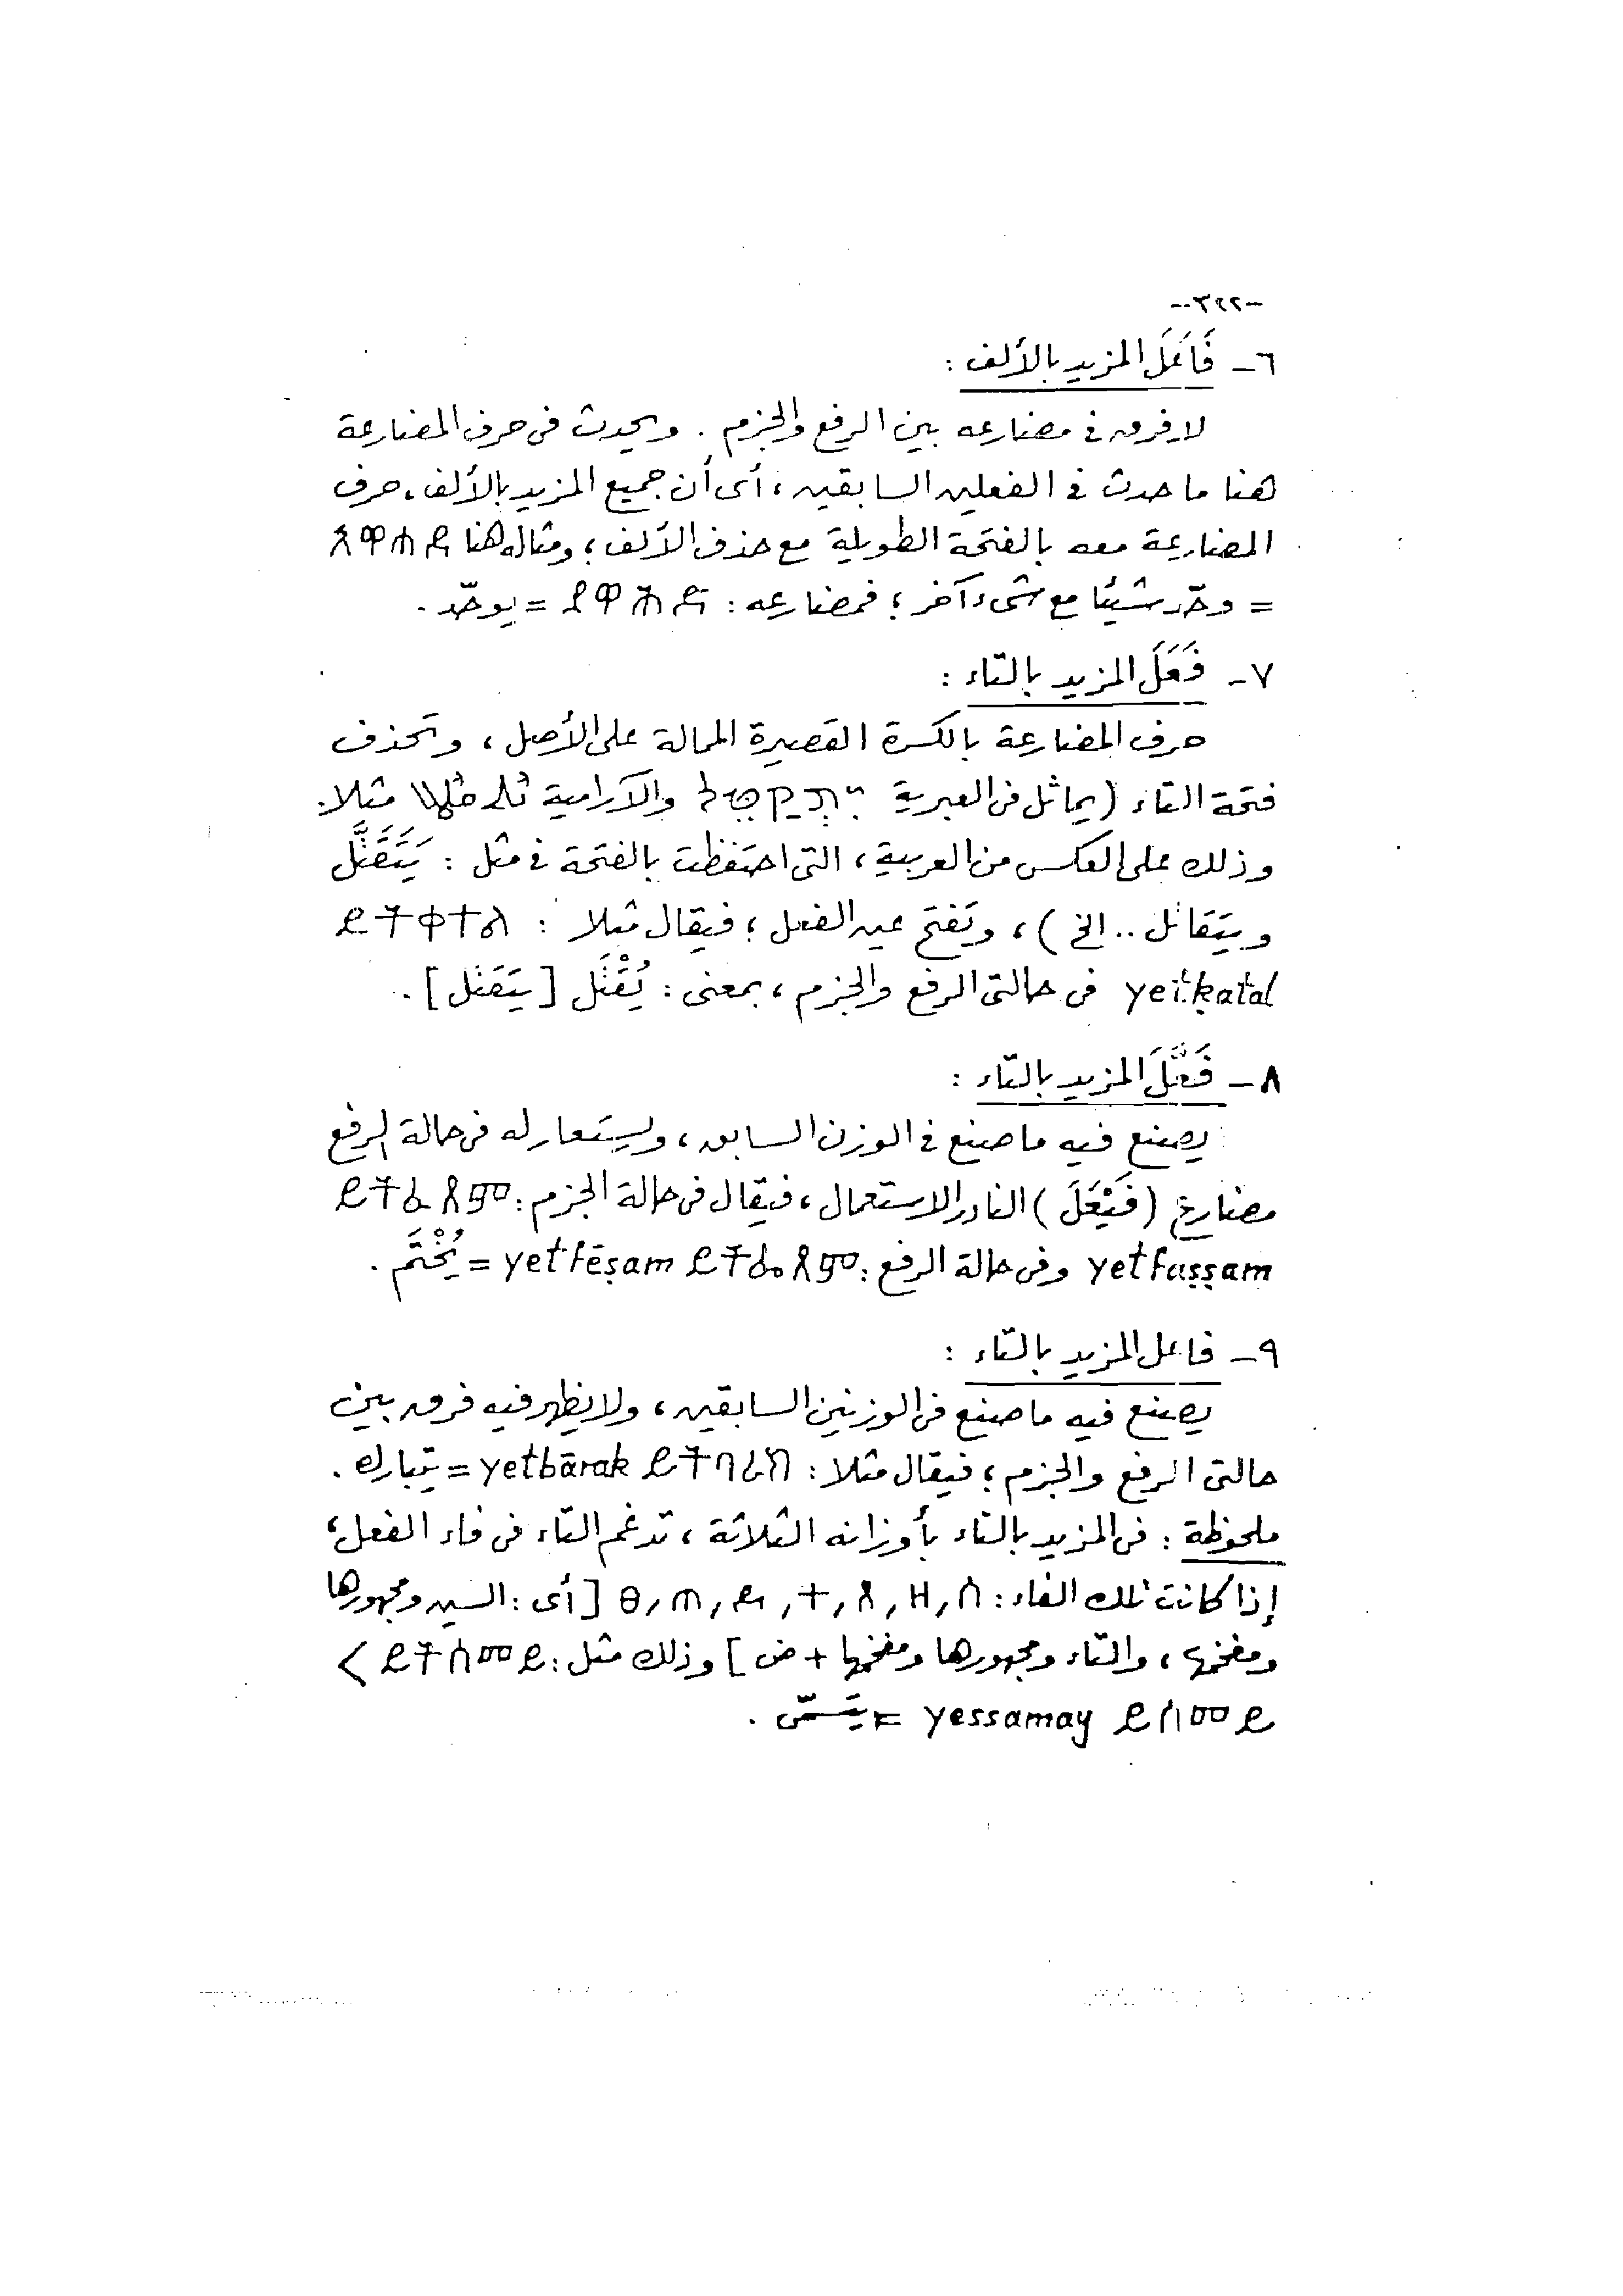 -٣٢٢-
٦- فَاعَلَ المزيد بالألف :
لا فرق فى مضارعه بين الرفع والجزم . ويحدث فى حرف المضارعة
هنا ما حدث فى الفعلين السابقين ، أى أن جميع المزيد بالألف ، حرف
المضارعة معه بالفتحة الطويلة مع حذف الألف ؛ ومثاله هنا
= وحّد شيئًا مع شىء آخر ؛ فمضارعه : = يوحّد .
٧- فَعَلَ المزيد بالتاء :
حرف المضارعة بالكسرة القصيرة الممالة على الأصل ، وتحذف
فتحة التاء (يماثل فى العبرية והآرامية مثلا.
وذلك على العكس من العربية ، التى احتفظت بالفتحة فى مثل : يَتَقَتَّل
ويتقاتل .. الخ ) ، وتفتح عين الفعل ؛ فيقال مثلا : ይትቀተል
yetḳatal فى حالتى الرفع والجزم ، بمعنى : يُقْتَل [يتقتل] .
٨- فَعَّلَ المزيد بالتاء :
يصنع فيه ما صنع فى الوزن السابق ، ويستعار له فى حالة الرفع
مضارع (فَيْعَلَ) النادر الاستعمال ، فيقال فى حالة الجزم : ይትፈጸም
yetfaṣṣam وفى حالة الرفع : ይትፌጸም yetfēṣam = يُخْتَم .
٩- فاعل المزيد بالتاء :
يصنع فيه ما صنع فى الوزنين السابقين ، ولا يظهر فيه فرق بين
حالتى الرفع والجزم ؛ فيقال مثلا : ይትባረክ yetbārak = يتبارك .
ملحوظة : فى المزيد بالتاء بأوزانه الثلاثة ، تدغم التاء فى فاء الفعل ،
إذا كانت تلك الفاء : ሰ , ዘ , ጸ , ተ , ደ , ጠ , ፀ [أى : السين ومجهورها
ومفخمها ، والتاء ومجهورها ومفخمها + ض] وذلك مثل : ይትሰመይ >
ይሰመይ yessamay = يتسمّى .